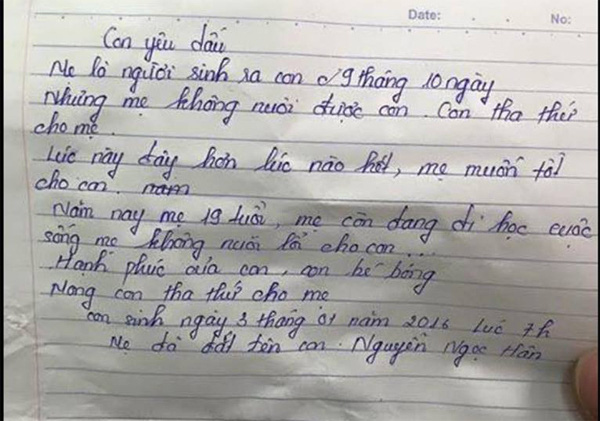 Date: No:
Con yêu dấu
Mẹ là người sinh ra con 9 tháng 10 ngày
Nhưng mẹ không nuôi được con. Con tha thứ
cho mẹ.
Lúc này đây hơn lúc nào hết, mẹ muốn tốt
cho con. năm
Năm nay mẹ 19 tuổi, mẹ còn đang đi học cuộc
sống mẹ không nuôi cho con...
Hạnh phúc của con, con bé bỏng
Mong con tha thứ cho mẹ
con sinh ngày 3 tháng 01 năm 2016 lúc 7h
Mẹ đã đặt tên con. Nguyễn Ngọc Hân